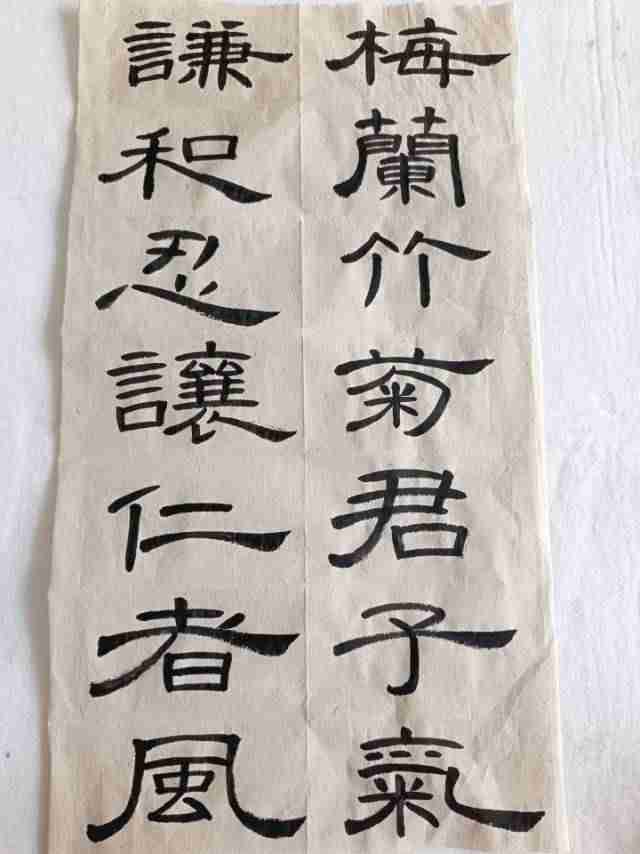 梅蘭竹菊君子氣
謙和忍讓仁者風